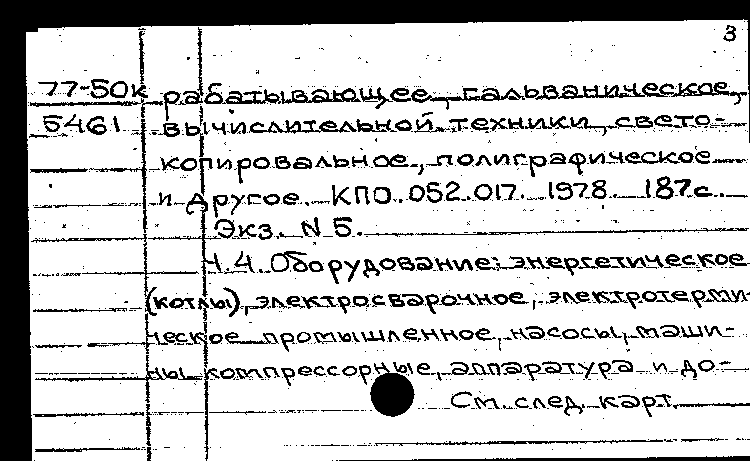 3
77-50к рабатывающее, гальваническое,
5461 вычислительной техники, свето-
копировальное, полиграфическое
и другое. КПО.052.017. 1978. 187с.
Экз. N 5.
Ч.4. Оборудование: энергетическое
(котлы), электросварочное, электротерми-
ческое промышленное, насосы, маши-
ны компрессорные, аппаратура и до-
См. след. карт.